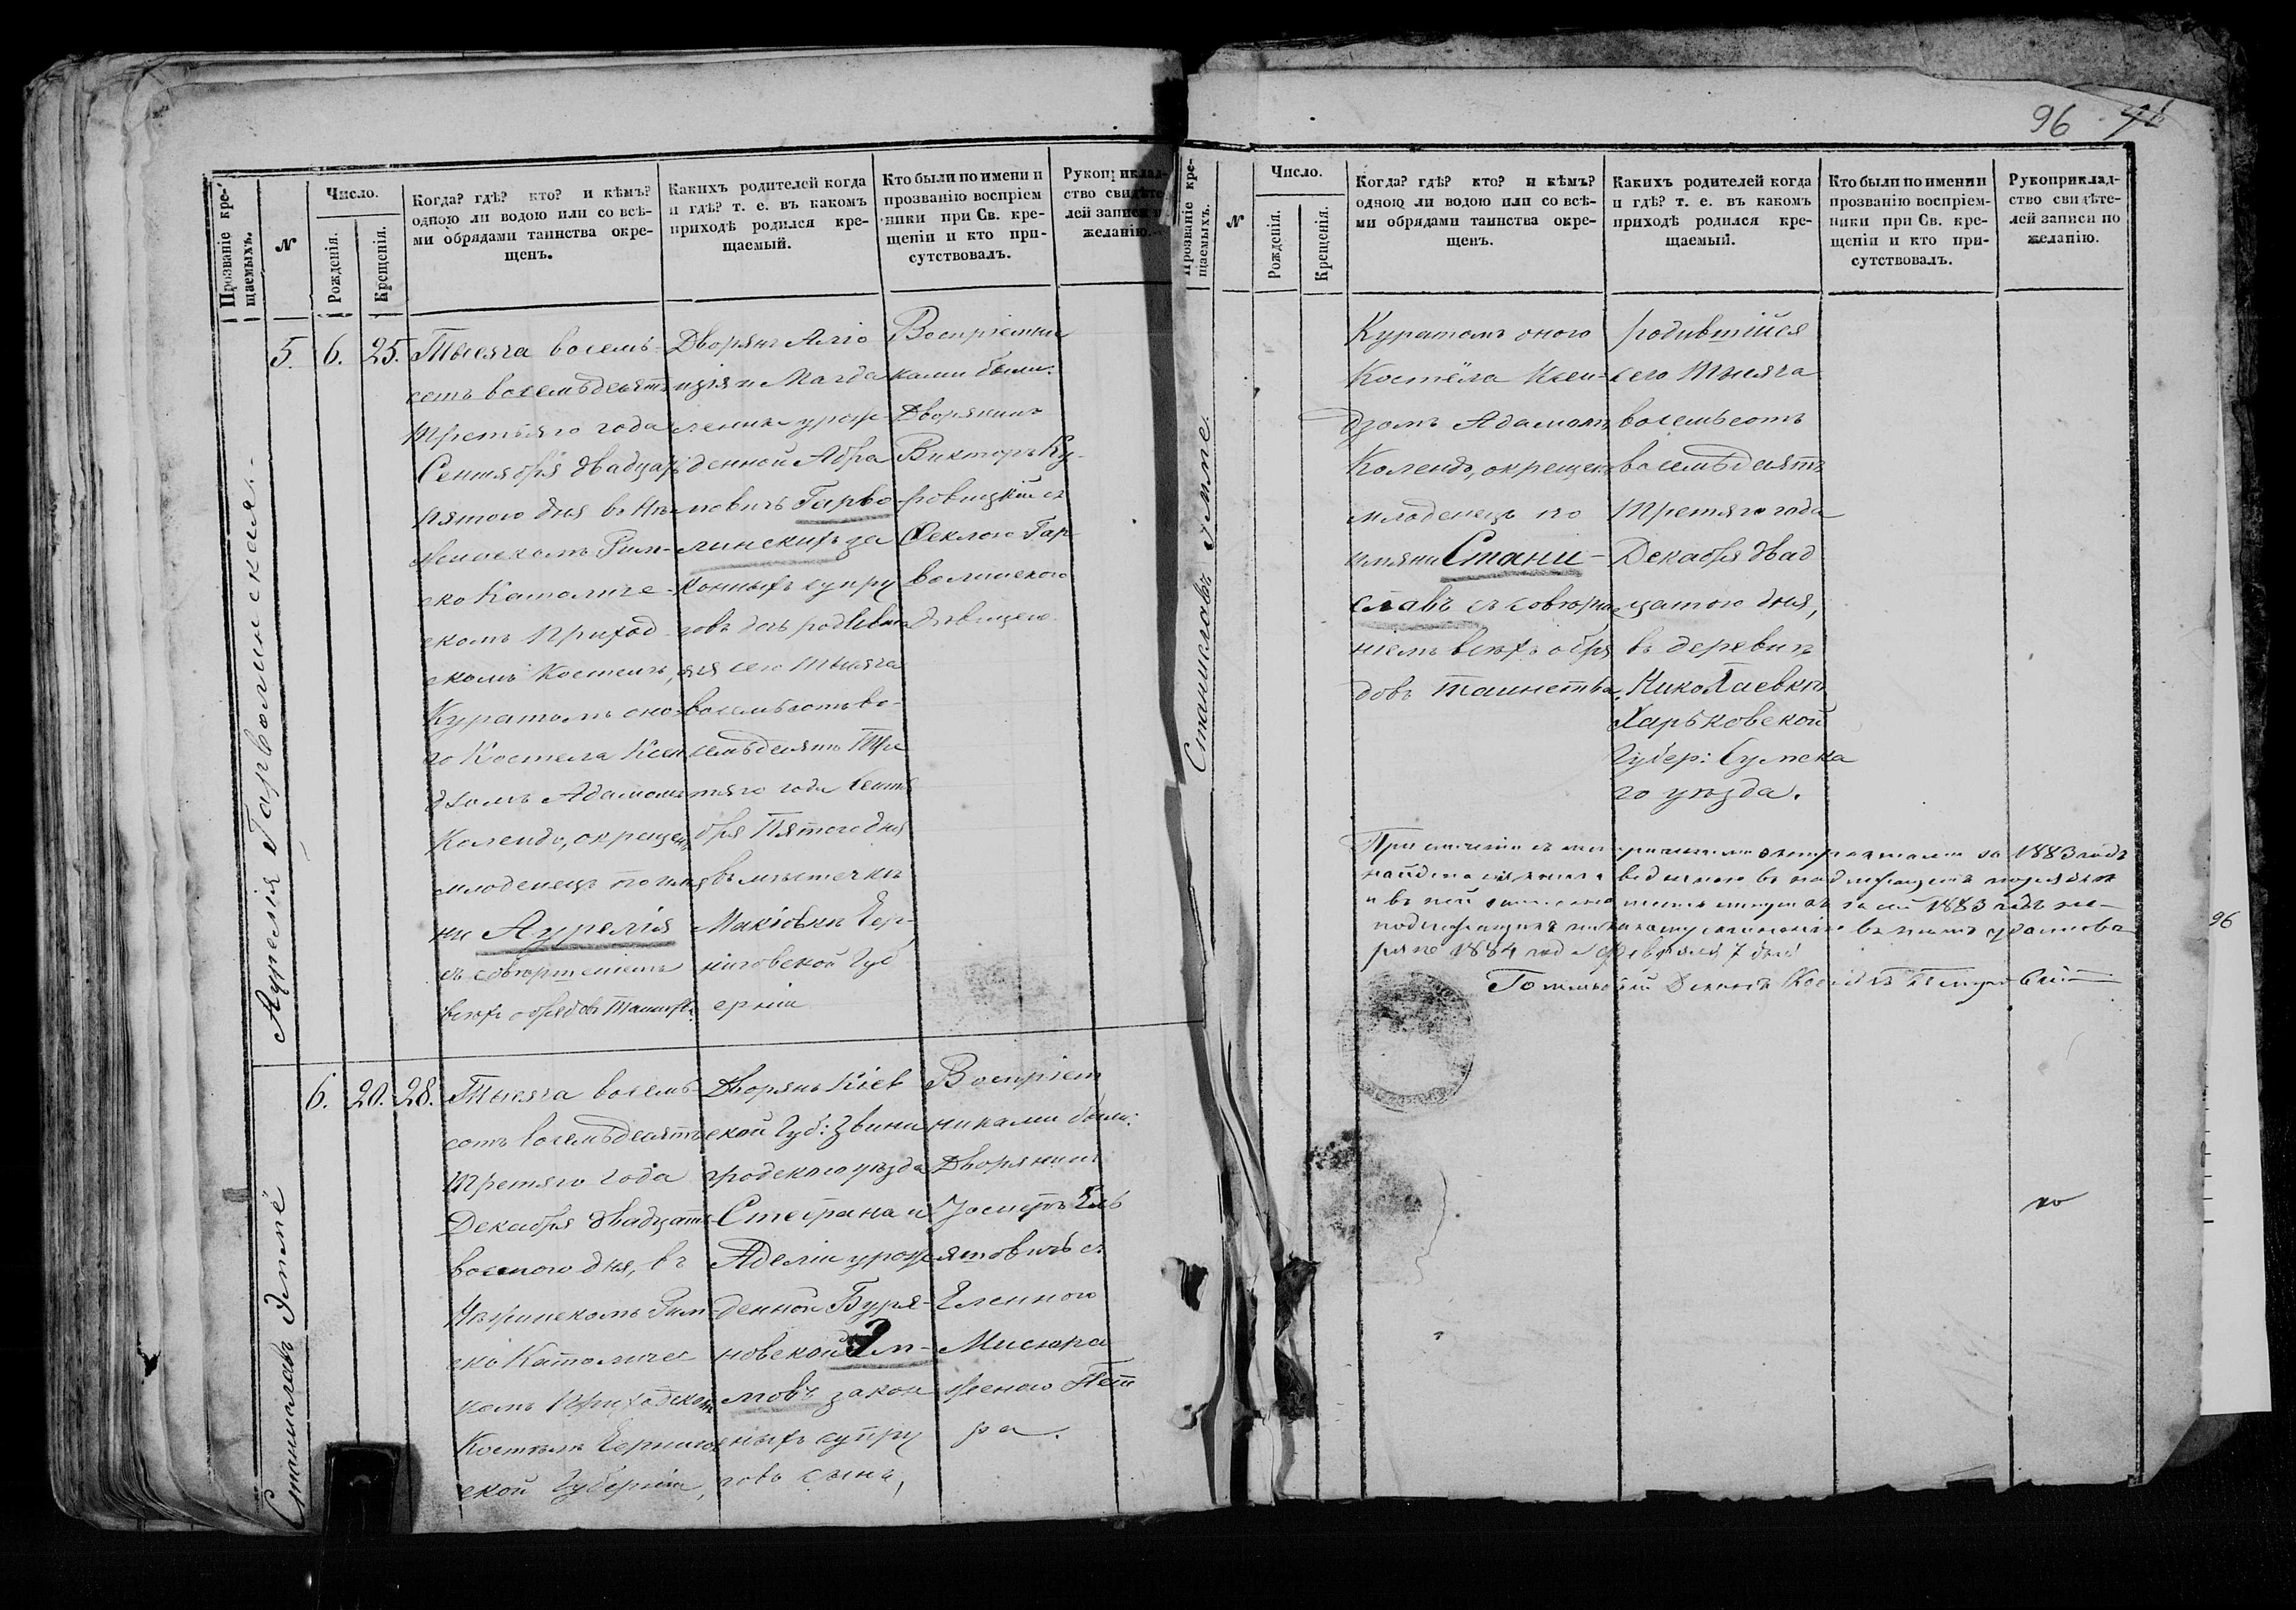 96
Прозваніе кре-
щаемыхъ.
N
Число.
Рожденія.
Крещенія.
Когда? гдѣ? кто? и кѣмъ?
одною ли водою или со всѣ-
ми обрядами таинства окре-
щенъ.
Какихъ родителей когда
и гдѣ? т. е. въ какомъ
приходѣ родился кре-
щаемый.
Кто были по имени и
прозванію воспріем
ники при Св. кре-
щеніи и кто при-
сутствовалъ.
Рукоприклад-
ство свидѣте-
лей записи по
желанію.
Аурелія Гарволинская.
5.
6.
25.
Тысяча восемь-
сотъ восемьдесятъ
третьяго года
Сентября двадцать
пятого дня въ Нѣ-
жинскомъ Рим-
ско Католиче-
скомъ Приход
скомъ Костелѣ,
Куратомъ оно-
го Костела Ксен
дзомъ Адамомъ
Колендо, окрещенъ
младенецъ по имя
ни Аурелія
съ совершеніемъ
всѣхъ обрядовъ Таинства.
Дворянъ Алю
изія и Магда
лены урож-
денной Абра
мовичъ Гарво-
линскихъ за
конныхъ супру
говъ дочь родивша
яся сего тысяча
восемьсотъ во-
семьдесятъ Тре
тяго года Сентя
бря Пятого дня
въ мѣстечкѣ
Макіевкѣ Чер-
ниговской Губ
ерніи
Воспріемни
ками были:
Дворянинъ
Викторъ Ку-
ровицкій съ
Феклою Гар-
волинского
дѣвицею.
Станиславъ Эмме
6.
20.
28.
Тысяча восемь-
сотъ восемьдесятъ
третяго года
Декабря двадцать
восмого дня, въ
Нѣжинскомъ Рим-
ско Католичес
комъ Приходскомъ
Костелѣ Чернигов
ской Губерніи,
Дворянъ Кіев
ской Губ: Звени
городского уѣзда
Стефана и
Аделіи урож
денной Буря-
новской Эм-
мовъ закон
ныхъ супру
говъ сынъ,
Воспріем
никами были:
Дворянинъ
Іосифъ Ель
яшовичъ съ
Еленою
Мисюра
женою Пет
ра.
Прозваніе кре-
щаемыхъ.
N
Число.
Рожденія.
Крещенія.
Когда? гдѣ? кто? и кѣмъ?
одною ли водою или со всѣ-
ми обрядами таинства окре-
щенъ.
Какихъ родителей когда
и гдѣ? т. е. въ какомъ
приходѣ родился кре-
щаемый.
Кто были по имени и
прозванію воспріем-
ники при Св. кре-
щеніи и кто при-
сутствовалъ.
Рукоприклад-
ство свидѣте-
лей записи по
желанію.
Станиславъ Эмме.
Куратомъ оного
Костёла Ксен-
дзомъ Адамомъ
Колендо, окрещенъ
младенецъ по
имяни Стани-
славъ съ соверше
ніемъ всѣхъ обря
довъ таинства.
родившійся
сего Тысяча
восемьсотъ
восемьдесятъ
Третяго года
Декабря двад
цатого дня,
въ деревнѣ
Николаевкѣ
Харьковской
Губер: Сумска
го уѣзда.
При сличеніи съ за 1883 годъ
найдена сія книга веденною въ надлежащемъ порядкѣ
и въ ней 1883 годъ не-
въ чемъ удостовѣ-
ряю 1884 года Февраля 7 дня
96